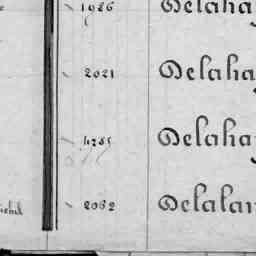 1986 Delahay
2021 Delahay
4785 Delahay
2062 Delalan